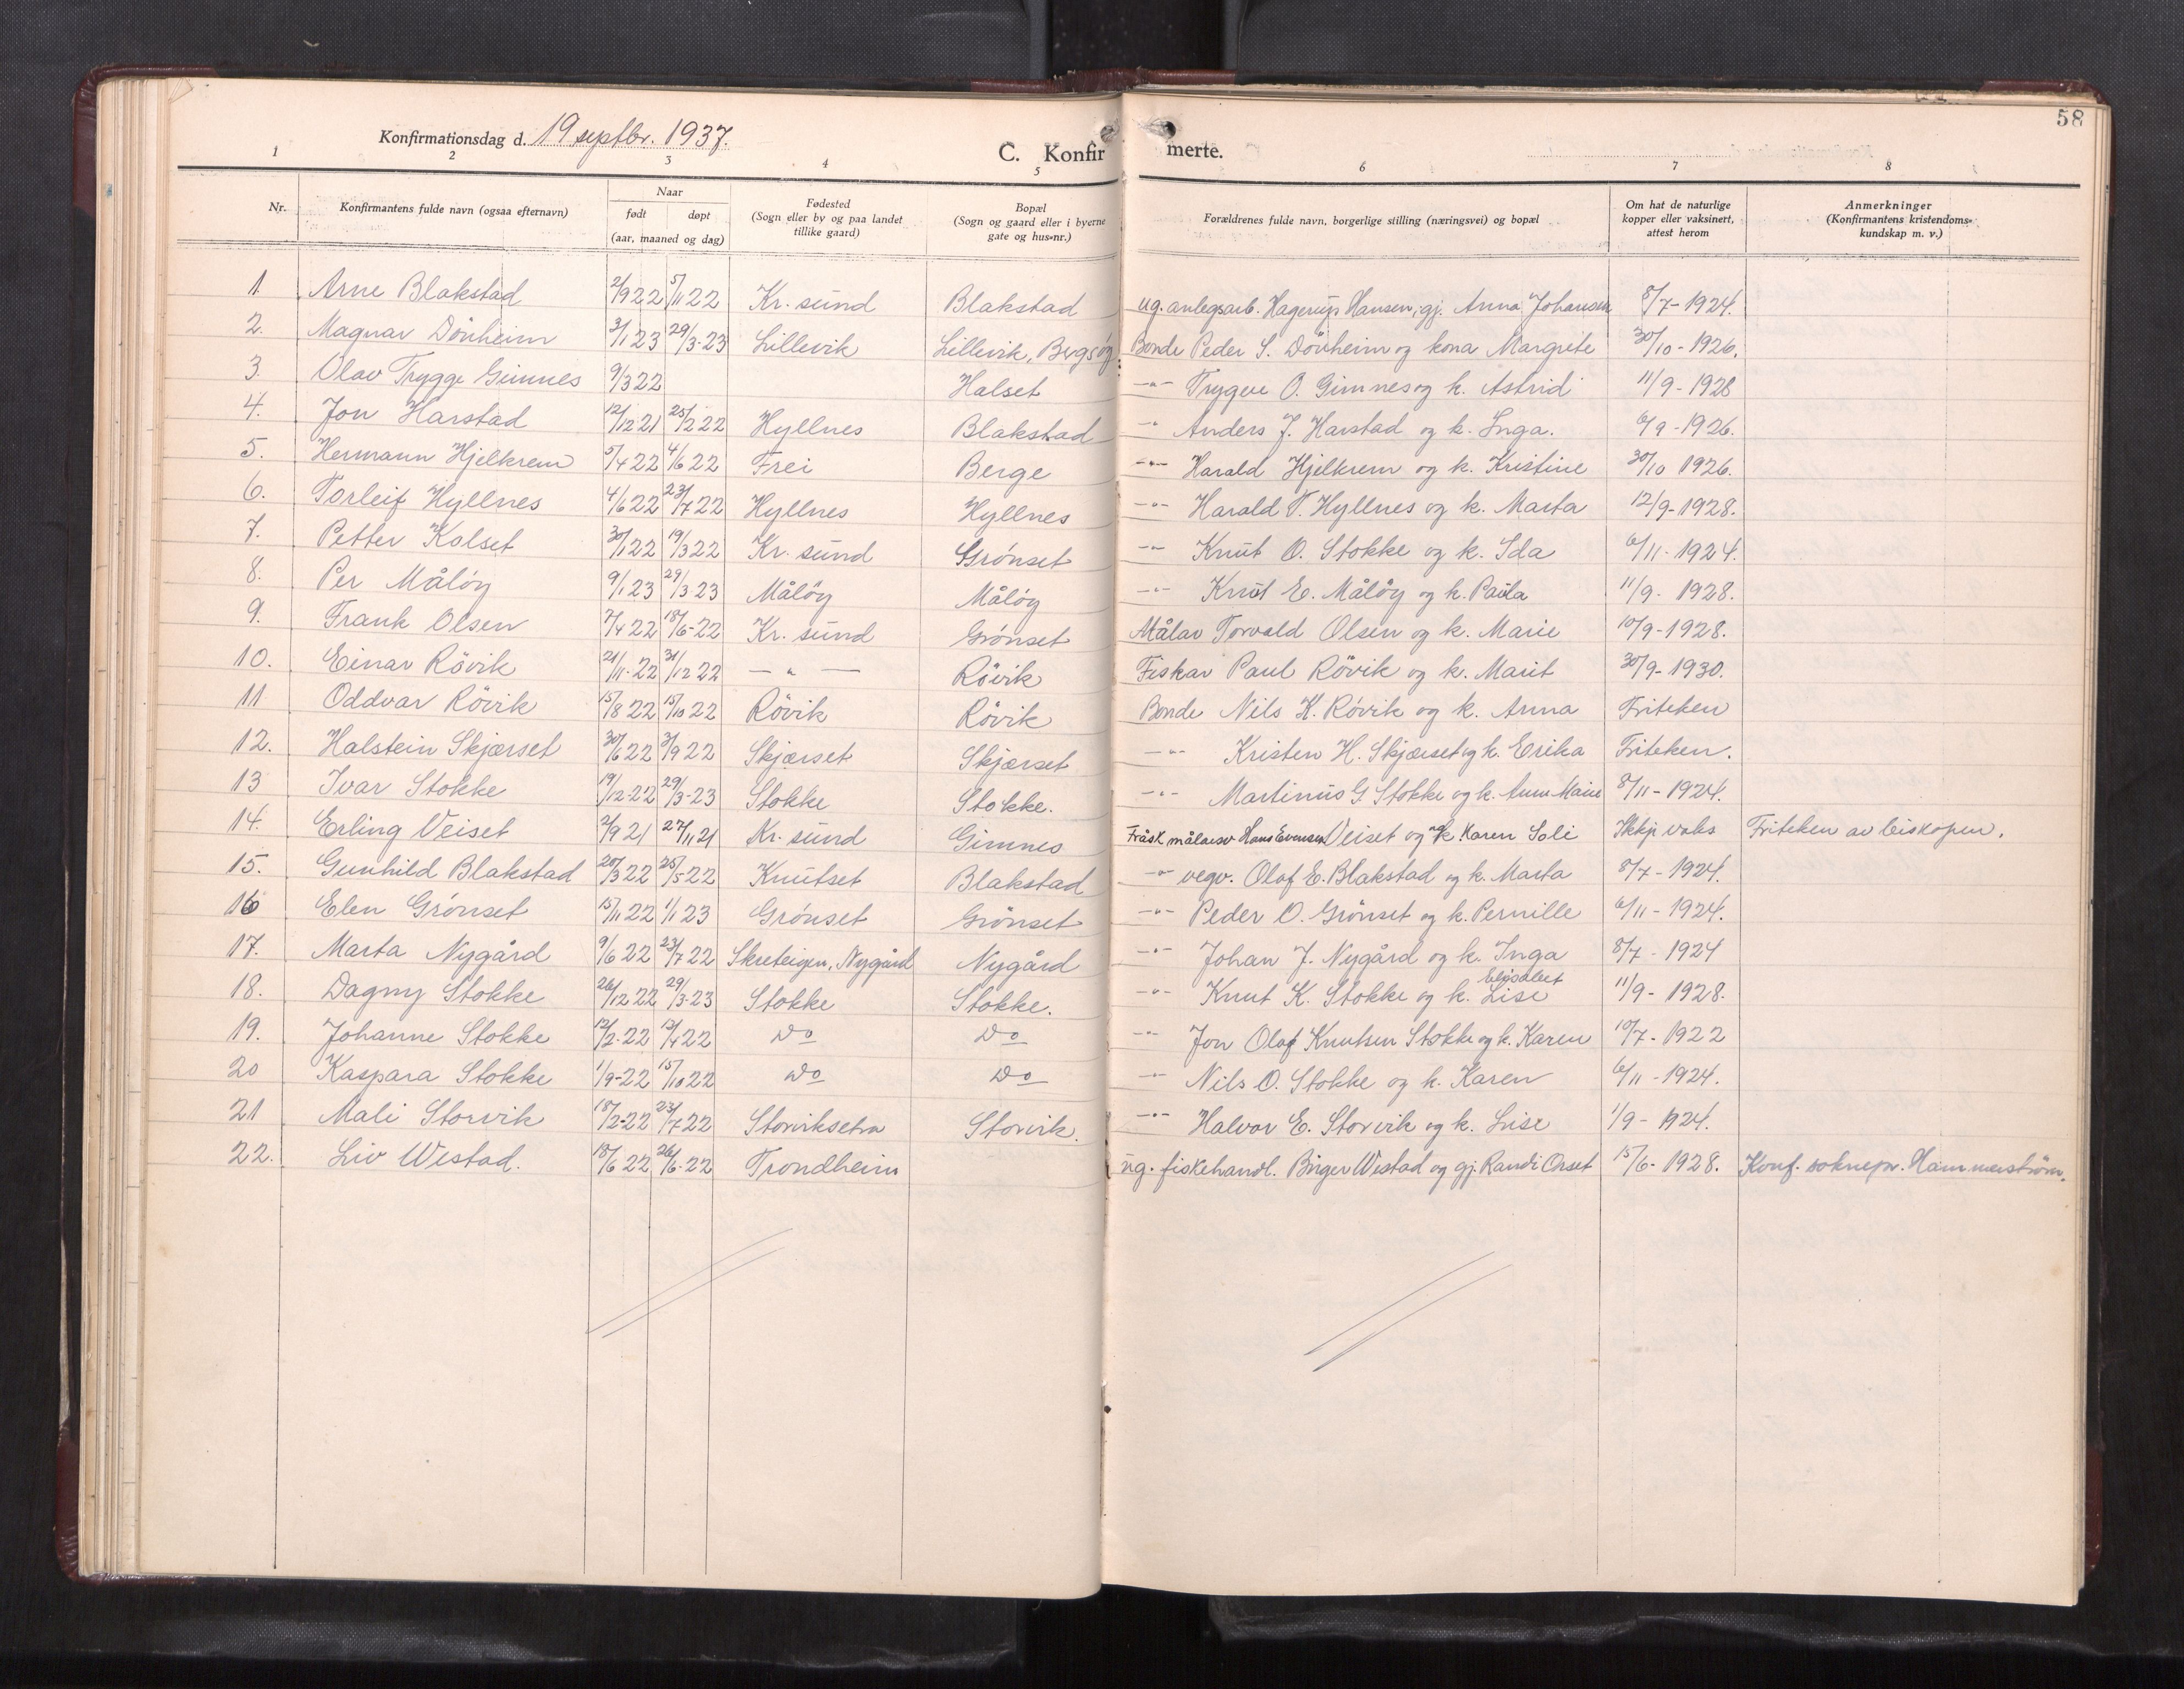 58
Konfirmationsdag d. 19 septbr. 1937.
C. Konfirmerte.
1 2 3 4 5 6 7 8
Nr. Konfirmantens fulde navn (ogsaa efternavn) Naar født døpt (aar, maaned og dag) Fødested (Sogn eller by og paa landet tillike gaard) Bopæl (Sogn og gaard eller i byerne gate og hus-nr.) Forældrenes fulde navn, borgerlige stilling (næringsvei) og bopæl Om hat de naturlige kopper eller vaksinert, attest herom Anmerkninger (Konfirmantens kristendoms-kundskap m. v.)
1. Arne Blakstad 2/9 22 5/11 22 Kr. sund Blakstad ug. anlegsarb. Hagerup Hansen, gj. Anna Johansen 8/7-1924.
2. Magnar Dønheim 3/1 23 29/3-23 Lillevik Lillevik, Bergsøy Bonde Peder S. Dønheim og kona Margrete 30/10-1926.
3. Olav Trygge Gimnes 9/3 22 Halset -"- Trygve O. Gimnes og k. Astrid 11/9-1928
4. Jon Harstad 12/12 21 25/2 22 Hyllnes Blakstad -"- Anders J. Harstad og k. Inga. 6/9-1926.
5. Hermann Hjelkrem 5/4 22 4/6 22 Frei Berge -"- Harald Hjelkrem og k. Kristine 30/10 1926.
6. Torleif Hyllnes 4/6 22 23/7 22 Hyllnes Hyllnes -"- Harald T. Hyllnes og k. Marta 12/9-1928.
7. Petter Kalset 30/1 22 19/3 22 Kr. sund Grønset -"- Knut O. Stokke og k. Ida 6/11-1924.
8. Per Måløy 9/1 23 29/3 23 Måløy Måløy -"- Knut E. Måløy og k. Paula 11/9-1928.
9. Frank Olsen 7/4 22 18/6-22 Kr. sund Grønset Målar Torvald Olsen og k. Marie 10/9-1928.
10. Einar Røvik 21/11-22 31/12 22 -"- Røvik Fiskar Paul Røvik og k. Marit 30/9-1930.
11 Oddvar Røvik 15/8 22 15/10 22 Røvik Røvik Bonde Nils K. Røvik og k. Anna Friteken
12. Halstein Skjærset 30/6 22 3/9 22 Skjærset Skjærset -"- Kristen H. Skjærset og k. Erika Friteken.
13 Ivar Stokke 19/12-22 29/3-23 Stokke Stokke. -"- Martinus G. Stokke og k. Anne Marie 8/11-1924.
14. Erling Veiset 2/9 21 27/11 21 Kr. sund Gimnes Fråsk målarsv Hans Evensen Veiset og k. Karen Soli Ikkje vaks Friteken av biskopen.
15. Gunhild Blakstad 20/3 22 25/5-22 Knutset Blakstad -"- vegv. Olaf E. Blakstad og k. Marta 8/7-1924.
16 Elen Grønset 15/11 22 1/1 23 Grønset Grønset -"- Peder O. Grønset og k. Pernille 6/11-1924.
17. Marta Nygård 9/6 22 23/7 22 Skreteigen, Nygård Nygård -"- Johan J. Nygård og k. Inga 8/7-1924
18. Dagny Stokke 26/12 22 29/3-23 Stokke Stokke. -"- Knut K. Stokke og k. Elisabet Lise 11/9-1928.
19. Johanne Stokke 12/2-22 12/4 22 Do Do -"- Jon Olaf Knutsen Stokke og k. Karen 10/7-1922
20 Kaspara Stokke 1/9-22 15/10 22 Do Do -"- Nils O. Stokke og k. Karen 6/11-1924.
21 Mali Storvik 18/2-22 23/7 22 Storviksetra Storvik. -"- Halvor E. Storvik og k. Lise 1/9-1924.
22. Liv Westad. 18/6 22 26/6-22 Trondheim ug. fiskehandl. Birger Westad og gj. Randi Orset 15/6-1928. Konf. soknepr. Hammerstrøm.